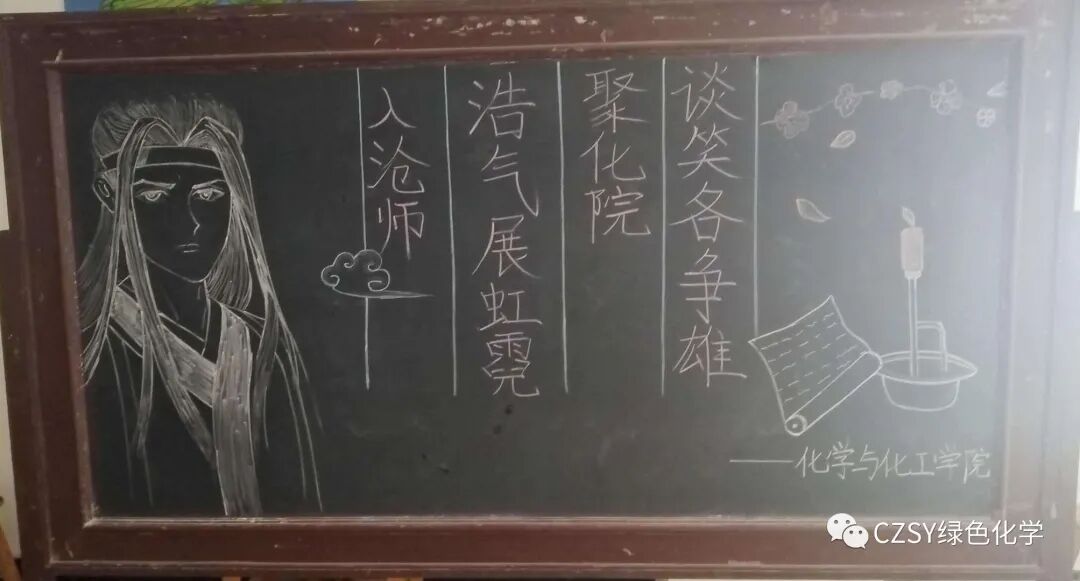 入沧师
浩气展虹霓
聚化院
谈笑各争雄
——化学与化工学院
CZSY绿色化学